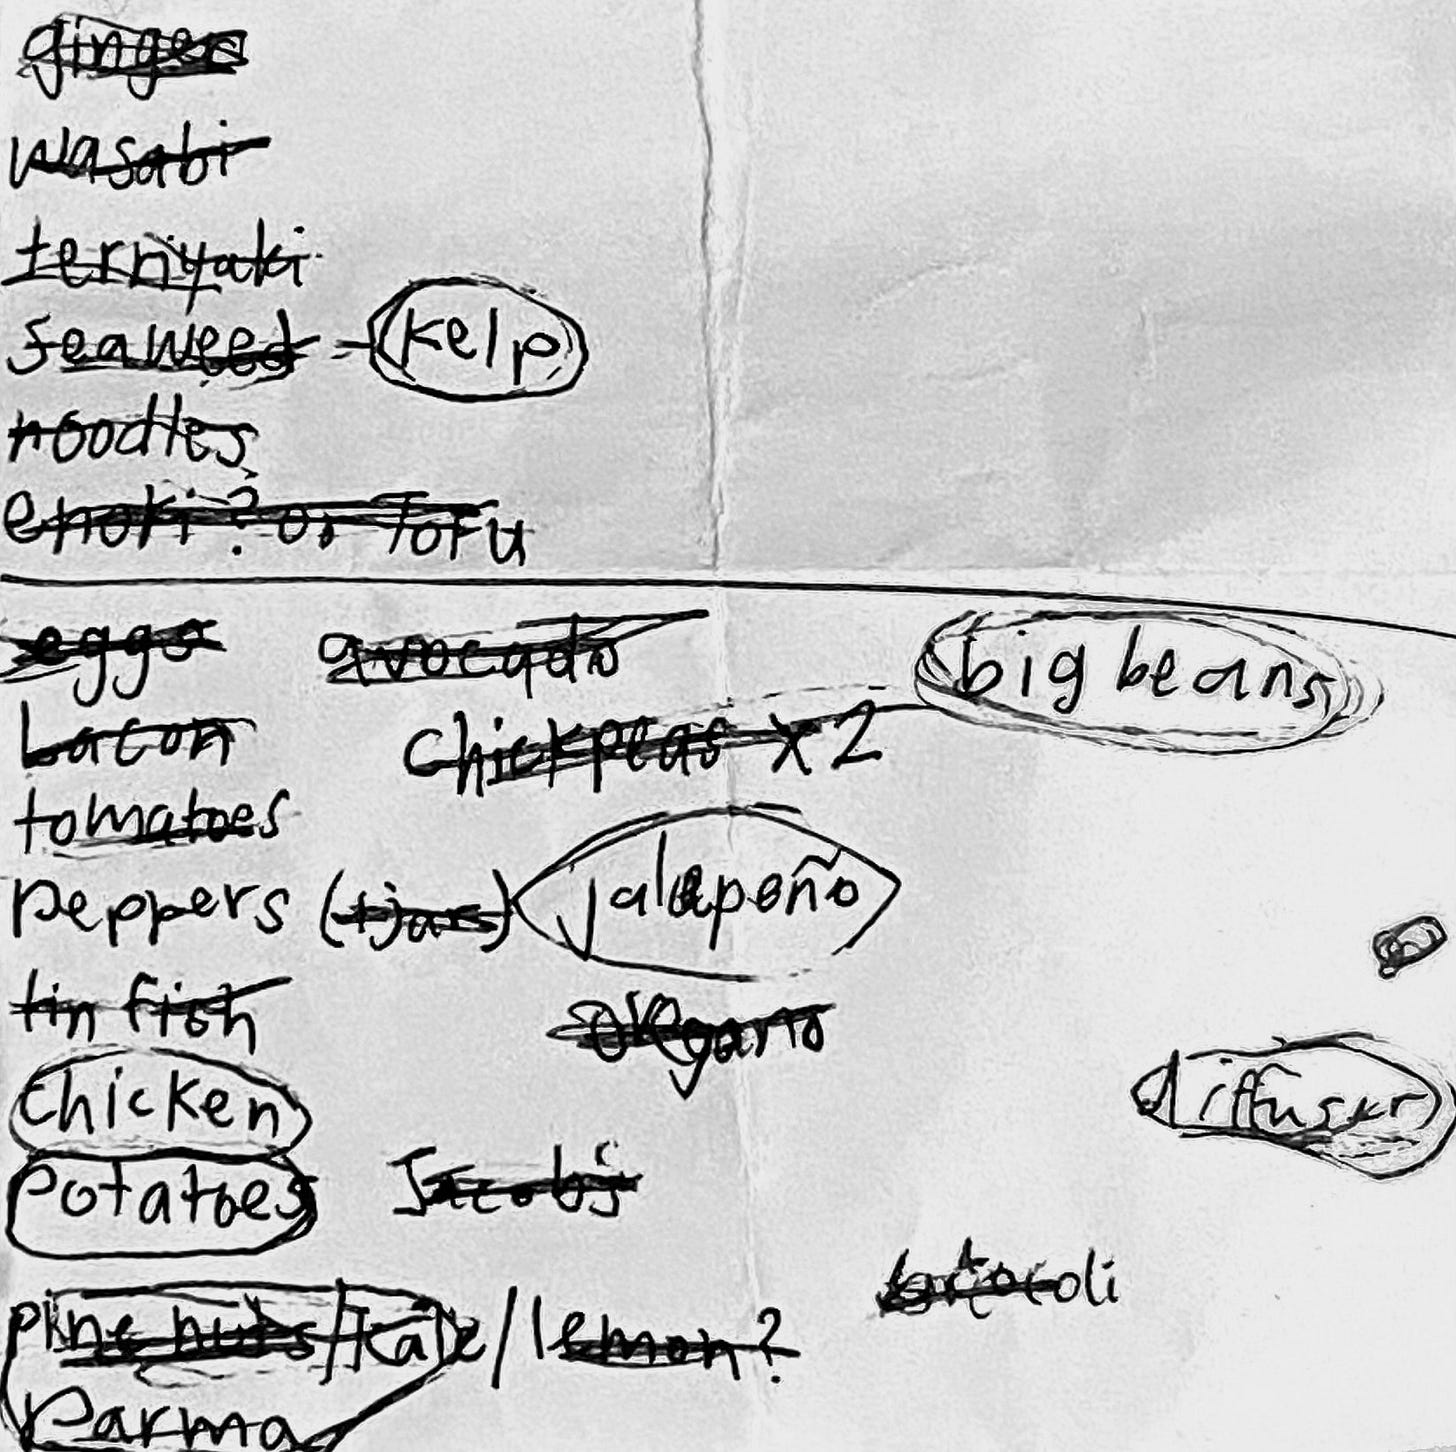 ginger
wasabi
terriyaki
seaweed - Kelp
noodles
enoki? or Tofu
eggs avocado big beans
bacon chickpeas x2
tomatoes
peppers (1 jars) jalepeño
tin fish oregano
chicken diffuser
potatoes Jacobs
brocoli
pine nuts/kale/lemon?
Parma